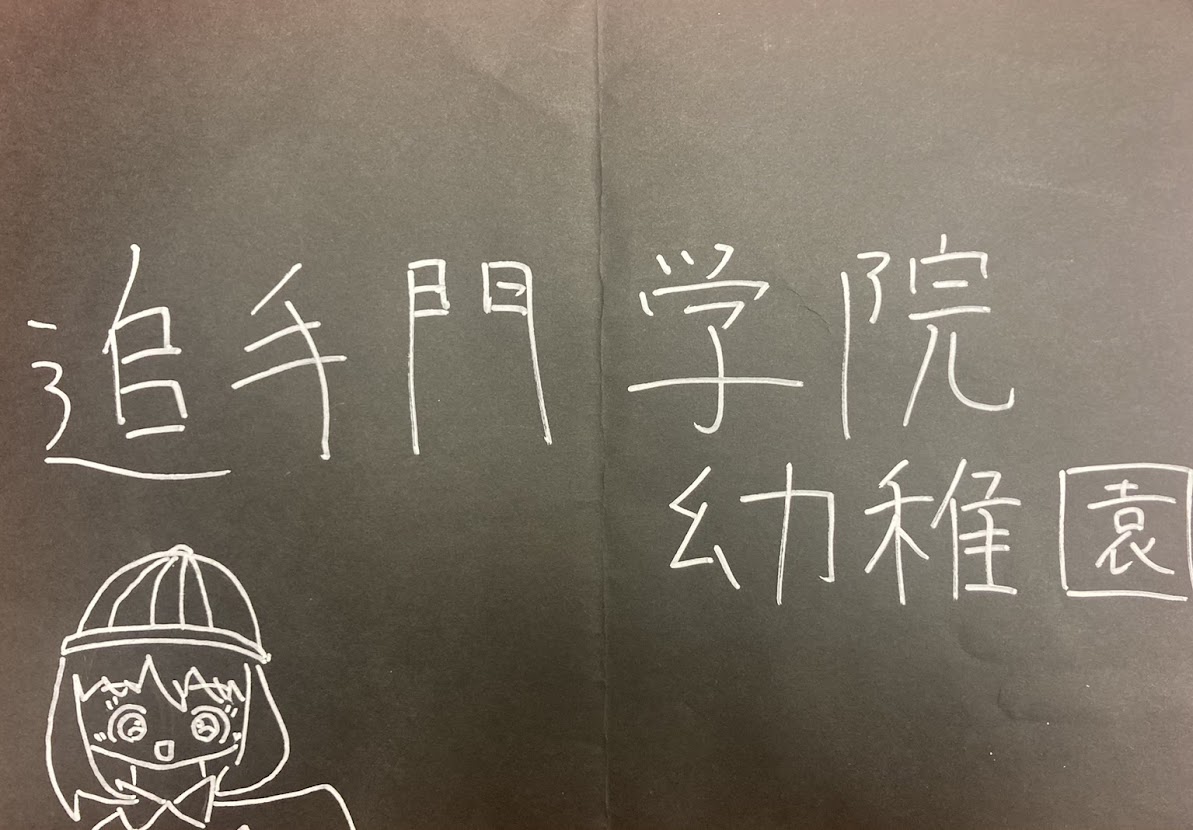 追手門学院
幼稚園